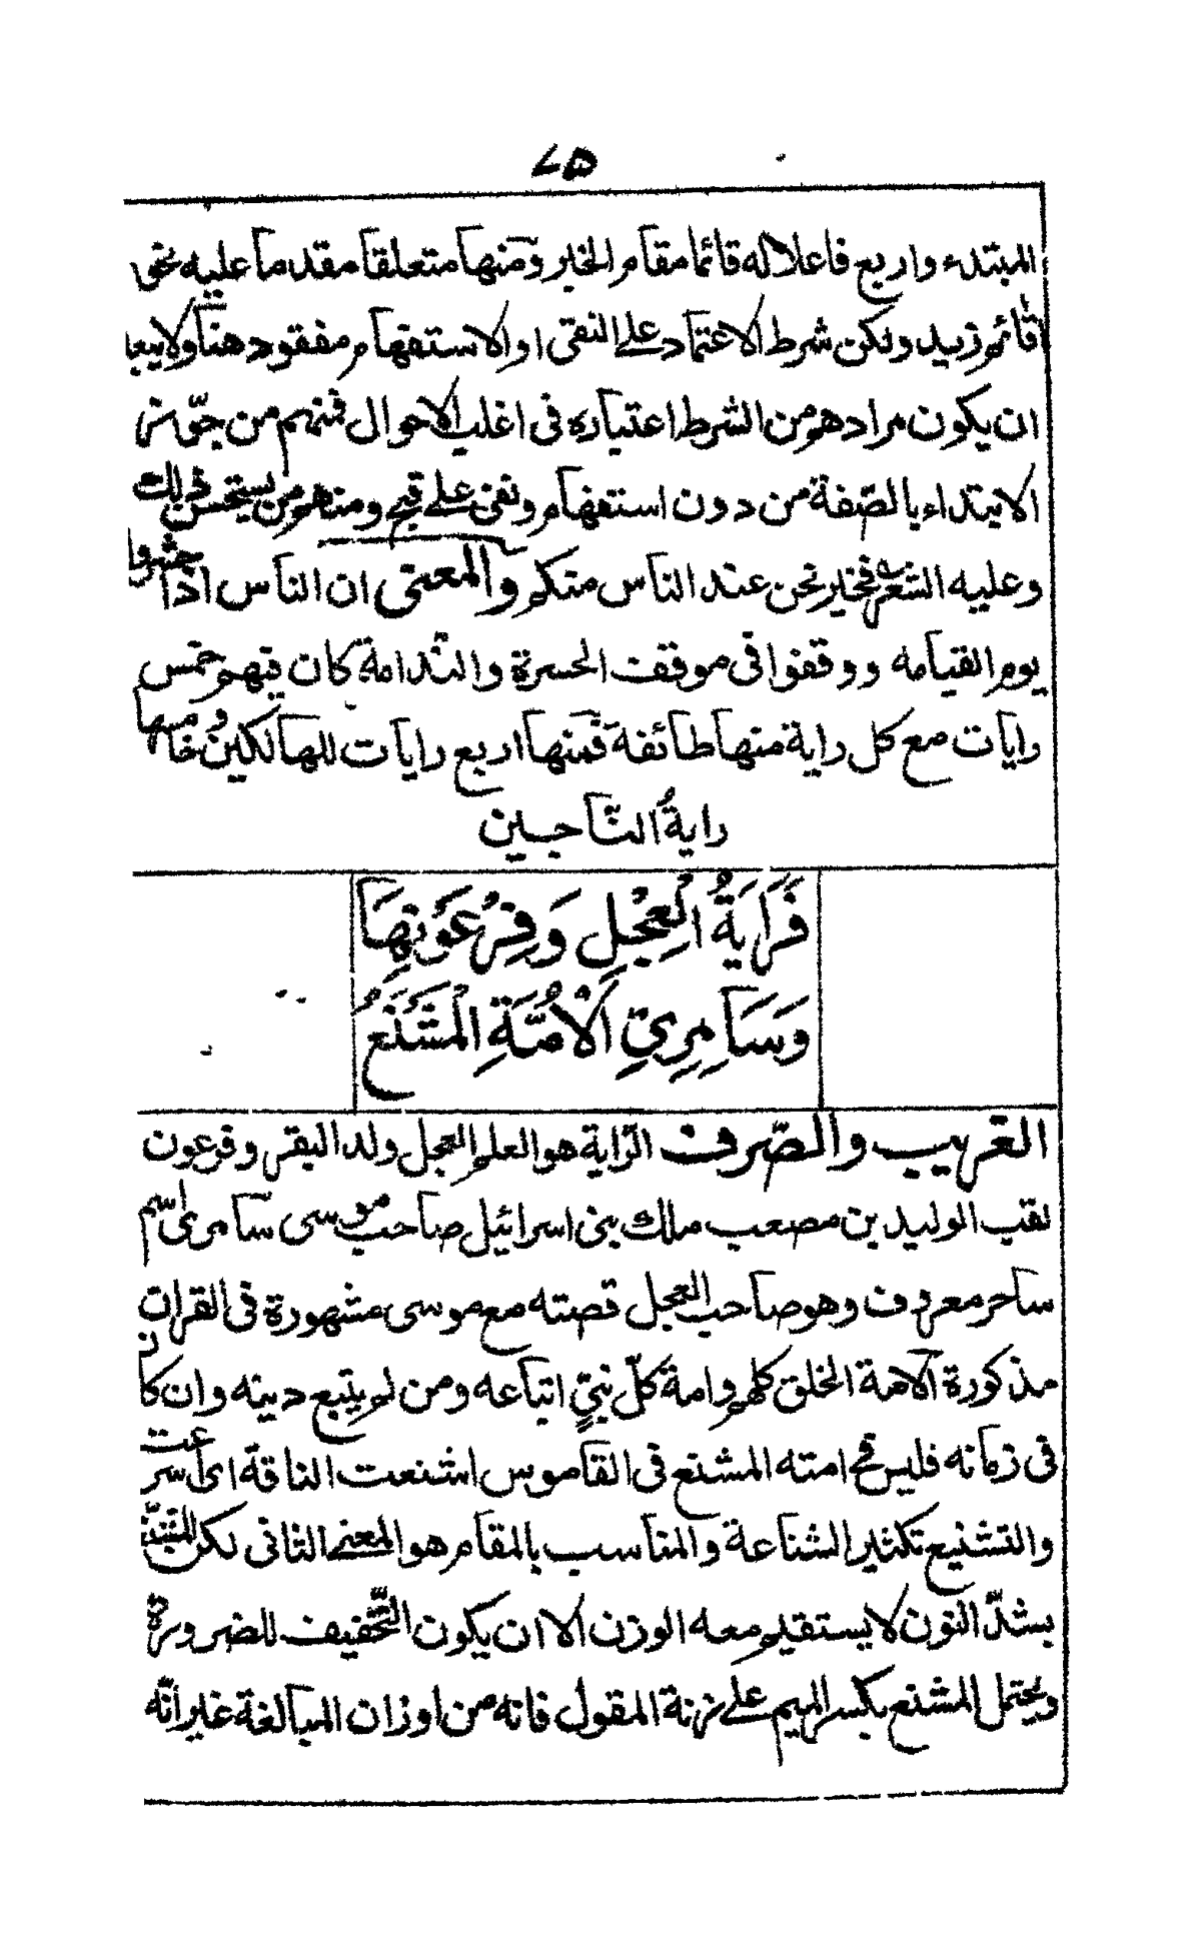 ٧٥
المبتدء واربع فاعلا له قائما مقام الخبر ومنها متعلقا مقدما عليه نحو
اقائم زيد ولكن شرط الاعتماد على النفى او الاستفهام مفقود هنا ولا يبعد
ان يكون مرادهم من الشرط اعتباره فى اغلب الاحوال فمنهم من جوّز
الابتداء بالصّفة من دون استفهام ونفى على قبح ومنهم من يستحسن ذلك
وعليه الشعر فخير نحن عند الناس منكم والمعنى ان الناس اذا حشروا
يوم القيامه ووقفوا فى موقف الحسرة والندامة كان فيهم خمس
رايات مع كل راية منها طائفة فمنها اربع رايات للهالكين وخامسها
راية الناجين
فَرَايَةُ الْعِجْلِ وَفِرْعَوْنِهَا
وَسَامِرِيِّ الْاُمَّةِ الْمُشَنَّعُ
الغريب والصّرف الرّاية هو العلم العجل ولد البقر وفرعون
لقب الوليد بن مصعب ملك بنى اسرائيل صاحب موسى سامرى اسم
ساحر معروف وهو صاحب العجل قصته مع موسى مشهورة فى القران
مذكورة الامة الخلق كلهم وامة كلّ نبىّ اتباعه ومن لم يتبع دينه وان كان
فى زمانه فليس فى امته المشنع فى القاموس اشنعت الناقة اى اسرعت
والتشنيع تكثير الشناعة والمناسب بالمقام هو المعنى الثانى لكن المشنّع
بشدّ النون لا يستقيم معه الوزن الا ان يكون التّخفيف للضرورة
ويحتمل المشنع بكسر الميم على زنة المقول فانه من اوزان المبالغة غير انّه